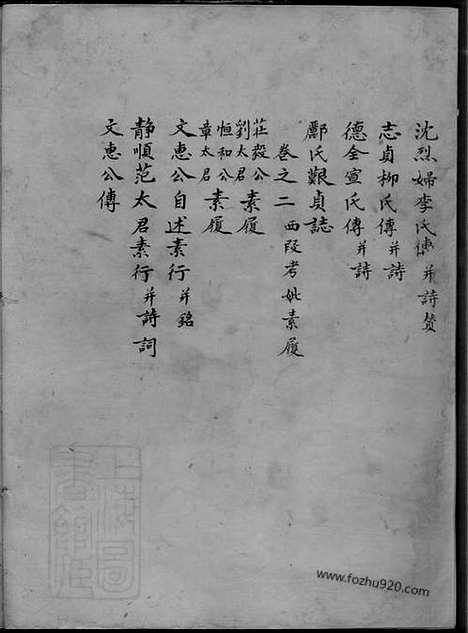 沈烈婦李氏傳并詩贊
志貞柳氏傳并詩
德全宣氏傳并詩
酈氏艱貞誌
卷之二 西段考妣素履
莊毅公劉太君素履
恒和公章太君素履
文惠公自述素行并銘
静順范太君素行并詩詞
文惠公傳
www.fozhu920.com